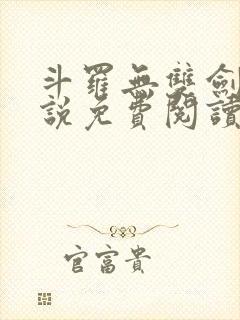 斗羅無雙劍
說免費閱讀
官富貴